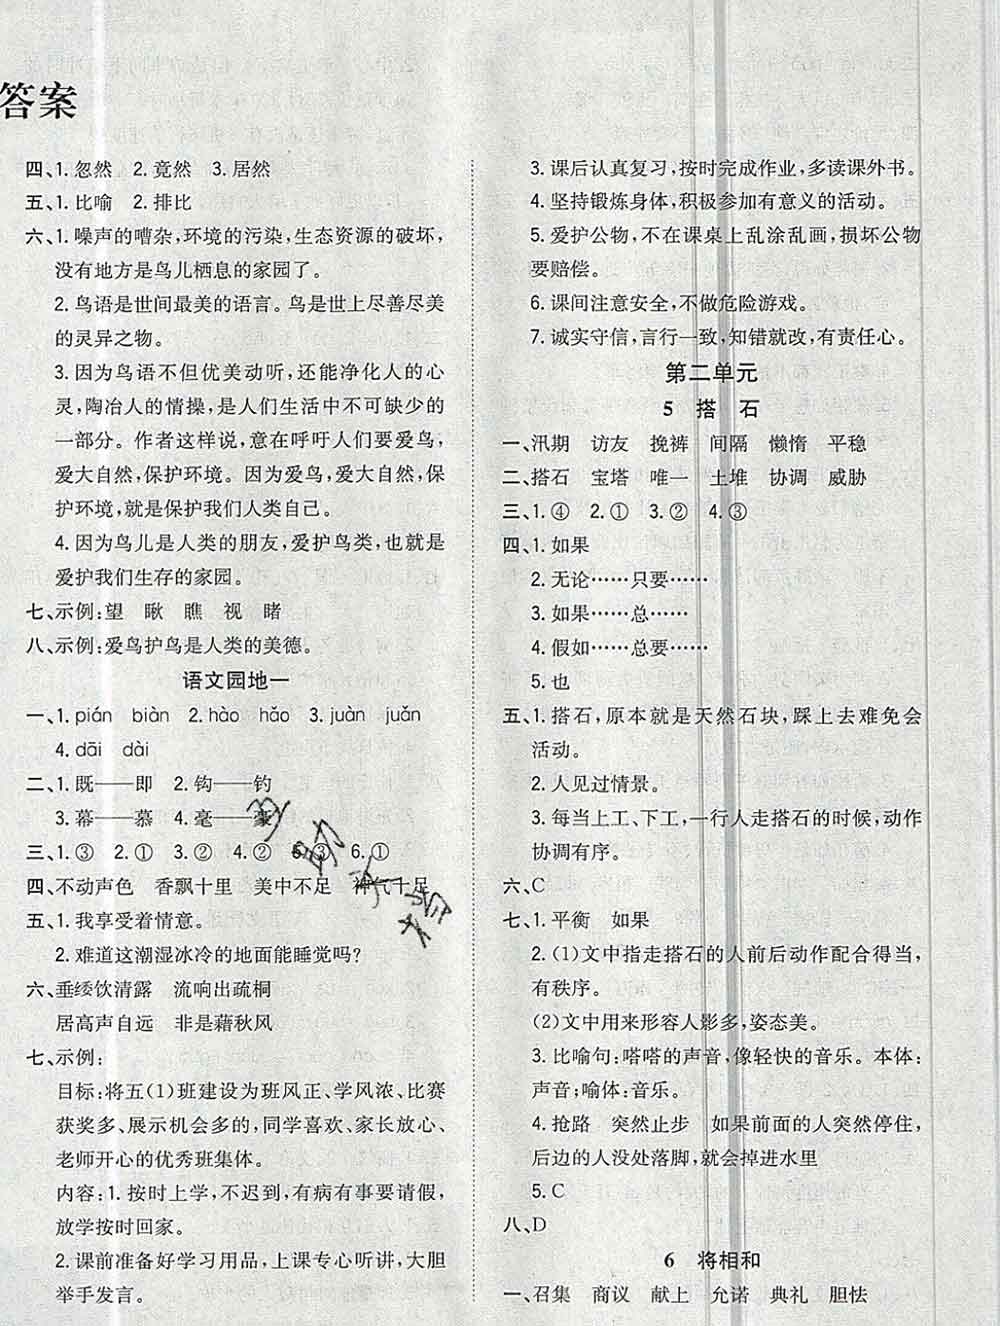 答案
四、1. 忽然 2. 竟然 3. 居然
五、1. 比喻 2. 排比
六、1. 噪声的嘈杂,环境的污染,生态资源的破坏,
没有地方是鸟儿栖息的家园了。
2. 鸟语是世间最美的语言。鸟是世上尽善尽美
的灵异之物。
3. 因为鸟语不但优美动听,还能净化人的心
灵,陶冶人的情操,是人们生活中不可缺少的
一部分。作者这样说,意在呼吁人们要爱鸟,
爱大自然,保护环境。因为爱鸟,爱大自然,保
护环境,就是保护我们人类自己。
4. 因为鸟儿是人类的朋友,爱护鸟类,也就是
爱护我们生存的家园。
七、示例:望 瞅 瞧 视 睹
八、示例:爱鸟护鸟是人类的美德。
语文园地一
一、1. pián biàn 2. hào hǎo 3. juàn juǎn
4. dāi dài
二、1. 既——即 2. 钩——钓
3. 幕——慕 4. 毫——豪
三、1. ③ 2. ① 3. ② 4. ② 5. ③ 6. ①
四、不动声色 香飘十里 美中不足 神气十足
五、1. 我享受着情意。
2. 难道这潮湿冰冷的地面能睡觉吗?
六、垂緌饮清露 流响出疏桐
居高声自远 非是藉秋风
七、示例:
目标:将五(1)班建设为班风正、学风浓、比赛
获奖多、展示机会多的,同学喜欢、家长放心、
老师开心的优秀班集体。
内容:1. 按时上学,不迟到,有病有事要请假,
放学按时回家。
2. 课前准备好学习用品,上课专心听讲,大胆
举手发言。
3. 课后认真复习,按时完成作业,多读课外书。
4. 坚持锻炼身体,积极参加有意义的活动。
5. 爱护公物,不在课桌上乱涂乱画,损坏公物
要赔偿。
6. 课间注意安全,不做危险游戏。
7. 诚实守信,言行一致,知错就改,有责任心。
第二单元
5 搭 石
一、汛期 访友 挽裤 间隔 懒惰 平稳
二、搭石 宝塔 唯一 土堆 协调 威胁
三、1. ④ 2. ① 3. ② 4. ③
四、1. 如果
2. 无论……只要……
3. 如果……总……
4. 假如……总要……
5. 也
五、1. 搭石,原本就是天然石块,踩上去难免会
活动。
2. 人见过情景。
3. 每当上工、下工,一行人走搭石的时候,动作
协调有序。
六、C
七、1. 平衡 如果
2. (1)文中指走搭石的人前后动作配合得当,
有秩序。
(2)文中用来形容人影多,姿态美。
3. 比喻句:嗒嗒的声音,像轻快的音乐。本体:
声音;喻体:音乐。
4. 抢路 突然止步 如果前面的人突然停住,
后边的人没处落脚,就会掉进水里
5. C
八、D
6 将相和
一、召集 商议 献上 允诺 典礼 胆怯